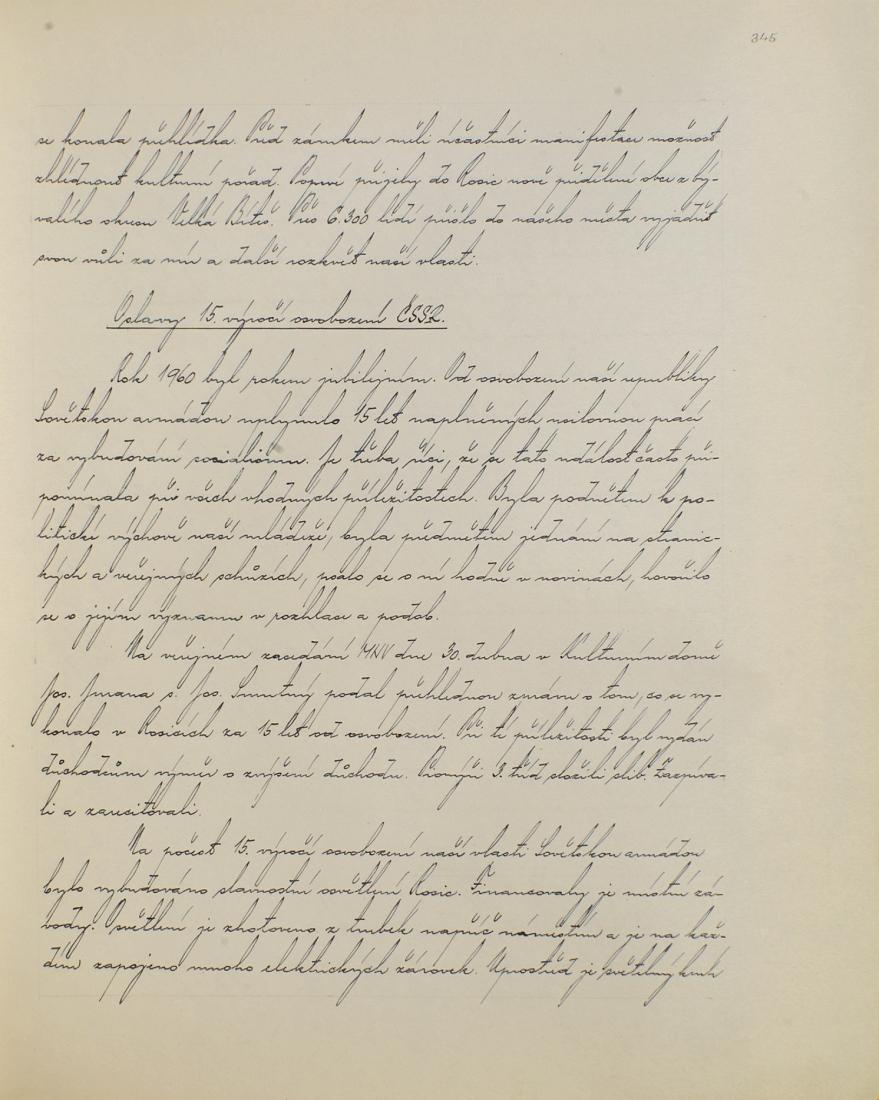 345
se konala přehlídka. Před zámkem měli účastníci manifestace možnost
zhlédnout kulturní pořad. Poprvé přijely do Rosic nově přidělené obce z bý-
valého okresu Velká Bíteš. Přes 6.300 lidí přišlo do našeho města vyjádřit
svou vůli za mír a další rozkvět naší vlasti.
Oslavy 15. výročí osvobození ČSSR.
Rok 1960 byl rokem jubilejním. Od osvobození naší republiky
Sovětskou armádou uplynulo 15 let naplněných usilovnou prací
za vybudování socialismu. Je třeba říci, že se tato událost často při-
pomínala při všech vhodných příležitostech. Byla podnětem k po-
litické výchově naší mládeže, byla předmětem jednání na stranic-
kých a veřejných schůzích, psalo se o ní hodně v novinách, hovořilo
se o jejím významu v rozhlase a podob.
Na veřejném zasedání MNV dne 30. dubna v Kulturním domě
Jos. Jurana s. Jos. Smutný podal přehlednou zprávu o tom, co se vy-
konalo v Rosicích za 15 let od osvobození. Při té příležitosti byl vydán
důchodcům výměr o zvýšení důchodu. Pionýři 3. tříd složili slib. Zazpíva-
li a zarecitovali.
Na počest 15. výročí osvobození naší vlasti Sovětskou armádou
bylo vybudováno slavnostní osvětlení Rosic. Financovaly je místní zá-
vody. Osvětlení je zhotoveno z trubek napříč náměstím a je na kaž-
dém zapojeno mnoho elektrických žárovek. Uprostřed je světelný kruh